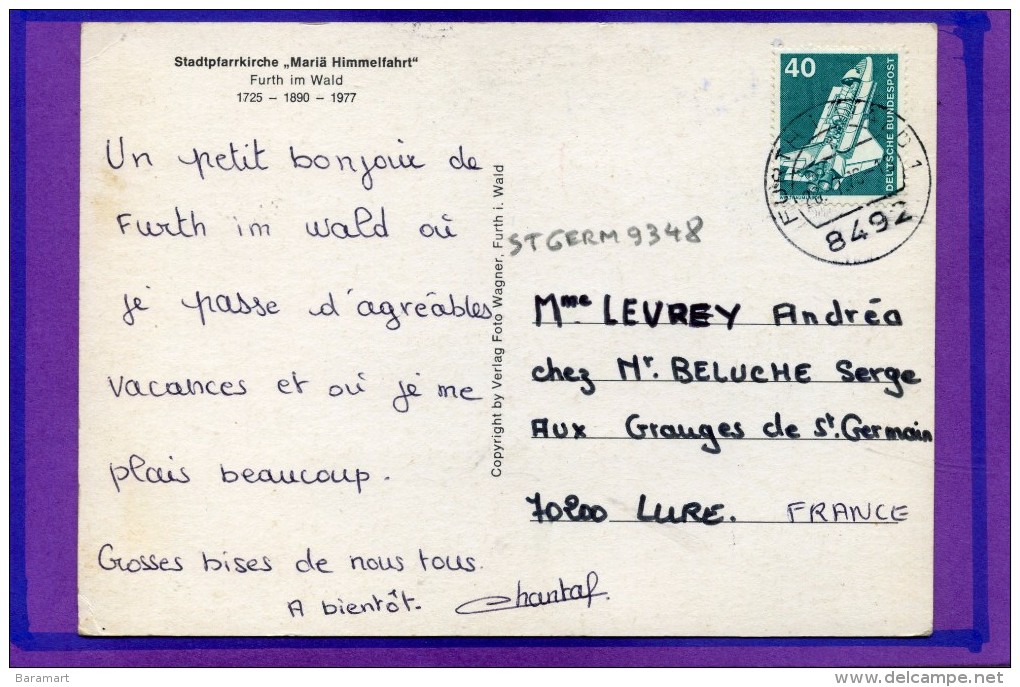 Stadtpfarrkirche „Mariä Himmelfahrt"
Furth im Wald
1725 – 1890 – 1977
Un petit bonjour de
Furth im wald où
je passe d'agréables
vacances et où je me
plais beaucoup.
Grosses bises de nous tous.
A bientôt. Chantal.
Copyright by Verlag Foto Wagner, Furth i. Wald
40
DEUTSCHE BUNDESPOST
FURTH
1
8492
ST GERM 9348
Mme LEVREY Andréa
chez Mr. BELUCHE Serge
Aux Granges de St. Germain
70200 LURE. FRANCE
Baramart
delcampe.net